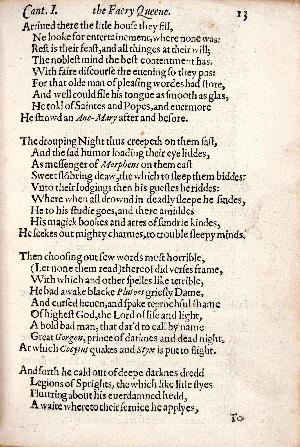 Cant. I. the Faery Queene. 13
Arriued there the little house they fill,
Ne looke for entertainement, where none was:
Rest is their feast, and all thinges at their will;
The noblest mind the best contentment has.
With faire discourse the euening so they pas:
For that olde man of pleasing wordes had store,
And well could file his tongue as smooth as glas,
He told of Saintes and Popes, and euermore
He strowd an Aue-Mary after and before.
The drouping Night thus creepeth on them fast,
And the sad humor loading their eye liddes,
As messenger of Morpheus on them cast
Sweet slōbring deaw, the which to sleep them biddes:
Vnto their lodgings then his guestes he riddes:
Where when all drownd in deadly sleepe he findes,
He to his studie goes, and there amiddes
His magick bookes and artes of sundrie kindes,
He seekes out mighty charmes, to trouble sleepy minds.
Then choosing out few words most horrible,
(Let none them read) thereof did verses frame,
With which and other spelles like terrible,
He bad awake blacke Plutoes griesly Dame,
And cursed heuen, and spake reprochful shame
Of highest God, the Lord of life and light,
A bold bad man, that dar'd to call by name
Great Gorgon, prince of darknes and dead night,
At which Cocytus quakes and Styx is put to flight.
And forth he cald out of deepe darknes dredd
Legions of Sprights, the which like little flyes
Fluttring about his euerdamned hedd,
A waite whereto their seruice he applyes,
To